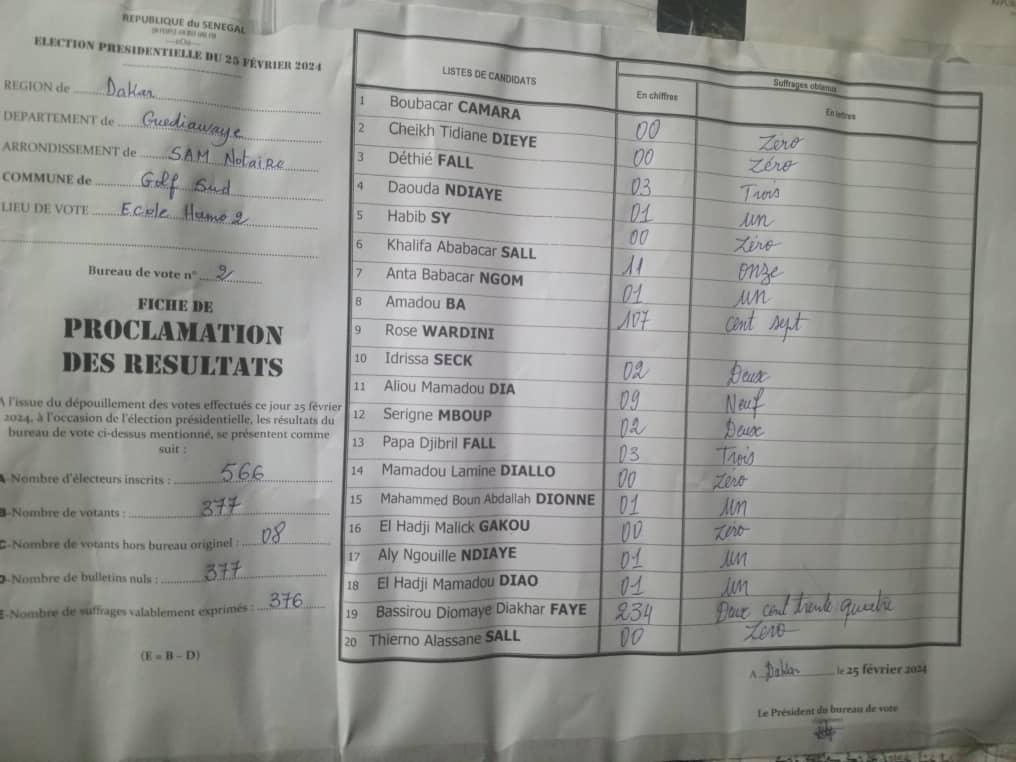 REPUBLIQUE du SENEGAL
ELECTION PRESIDENTIELLE DU 25 FÉVRIER 2024
REGION de Dakar
DEPARTEMENT de Guediawaye
ARRONDISSEMENT de SAM Notaire
COMMUNE de Golf Sud
LIEU DE VOTE Ecole Hamo 2
Bureau de vote n° 2
FICHE DE
PROCLAMATION
DES RESULTATS
A l'issue du dépouillement des votes effectués ce jour 25 février
2024, à l'occasion de l'élection présidentielle, les résultats du
bureau de vote ci-dessus mentionné, se présentent comme
suit :
A-Nombre d'électeurs inscrits : 566
B-Nombre de votants : 377
C-Nombre de votants hors bureau originel : 08
D-Nombre de bulletins nuls : 377
E-Nombre de suffrages valablement exprimés : 376
(E = B – D)
LISTES DE CANDIDATS Suffrages obtenus
En chiffres En lettres
1 Boubacar CAMARA 00 Zéro
2 Cheikh Tidiane DIEYE 00 Zéro
3 Déthié FALL 03 Trois
4 Daouda NDIAYE 01 un
5 Habib SY 00 Zéro
6 Khalifa Ababacar SALL 11 onze
7 Anta Babacar NGOM 01 un
8 Amadou BA 107 cent sept
9 Rose WARDINI
10 Idrissa SECK 02 Deux
11 Aliou Mamadou DIA 09 Neuf
12 Serigne MBOUP 02 Deux
13 Papa Djibril FALL 03 Trois
14 Mamadou Lamine DIALLO 00 Zéro
15 Mahammed Boun Abdallah DIONNE 01 un
16 El Hadji Malick GAKOU 00 zero
17 Aly Ngouille NDIAYE 01 un
18 El Hadji Mamadou DIAO 01 un
19 Bassirou Diomaye Diakhar FAYE 234 Deux cent trente quatre
20 Thierno Alassane SALL 00 Zero
A Dakar le 25 février 2024
Le Président du bureau de vote